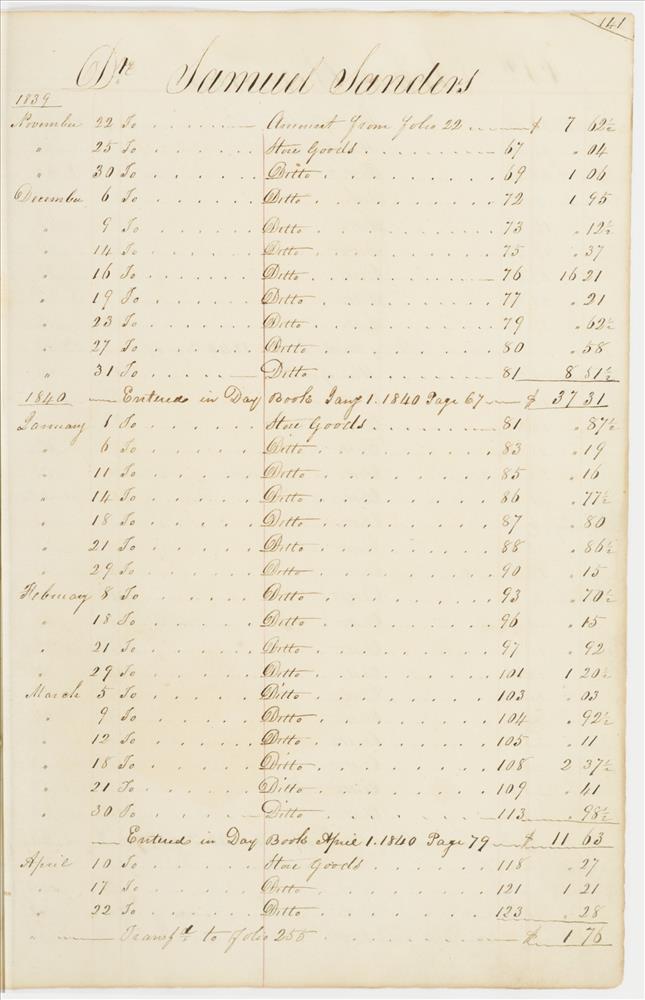 141
Dr. Samuel Sanders
1839
November 22 To Amount from folio 22 $ 7 62½
" 25 To Store Goods 67 . 04
" 30 To Ditto 69 1 06
December 6 To Ditto 72 1 95
" 9 To Ditto 73 . 12½
" 14 To Ditto 75 . 37
" 16 To Ditto 76 16 21
" 19 To Ditto 77 . 21
" 23 To Ditto 79 . 62½
" 27 To Ditto 80 . 58
" 31 To Ditto 81 8 51½
1840 Entered in Day Book Jany 1. 1840 Page 67 $ 37 31
January 1 To Store Goods 81 . 87½
" 6 To Ditto 83 . 19
" 11 To Ditto 85 . 16
" 14 To Ditto 86 . 77½
" 18 To Ditto 87 . 80
" 21 To Ditto 88 . 86½
" 29 To Ditto 90 . 15
February 8 To Ditto 93 . 70½
" 18 To Ditto 96 . 15
" 21 To Ditto 97 . 92
" 29 To Ditto 101 1 20½
March 5 To Ditto 103 . 03
" 9 To Ditto 104 . 92½
" 12 To Ditto 105 . 11
" 18 To Ditto 108 2 37½
" 21 To Ditto 109 . 41
" 30 To Ditto 113 . 98½
Entered in Day Book April 1. 1840 Page 79 $ 11 63
April 10 To Store Goods 118 . 27
" 17 To Ditto 121 1 21
" 22 To Ditto 123 . 28
" Transfd. to folio 255 $ 1 76